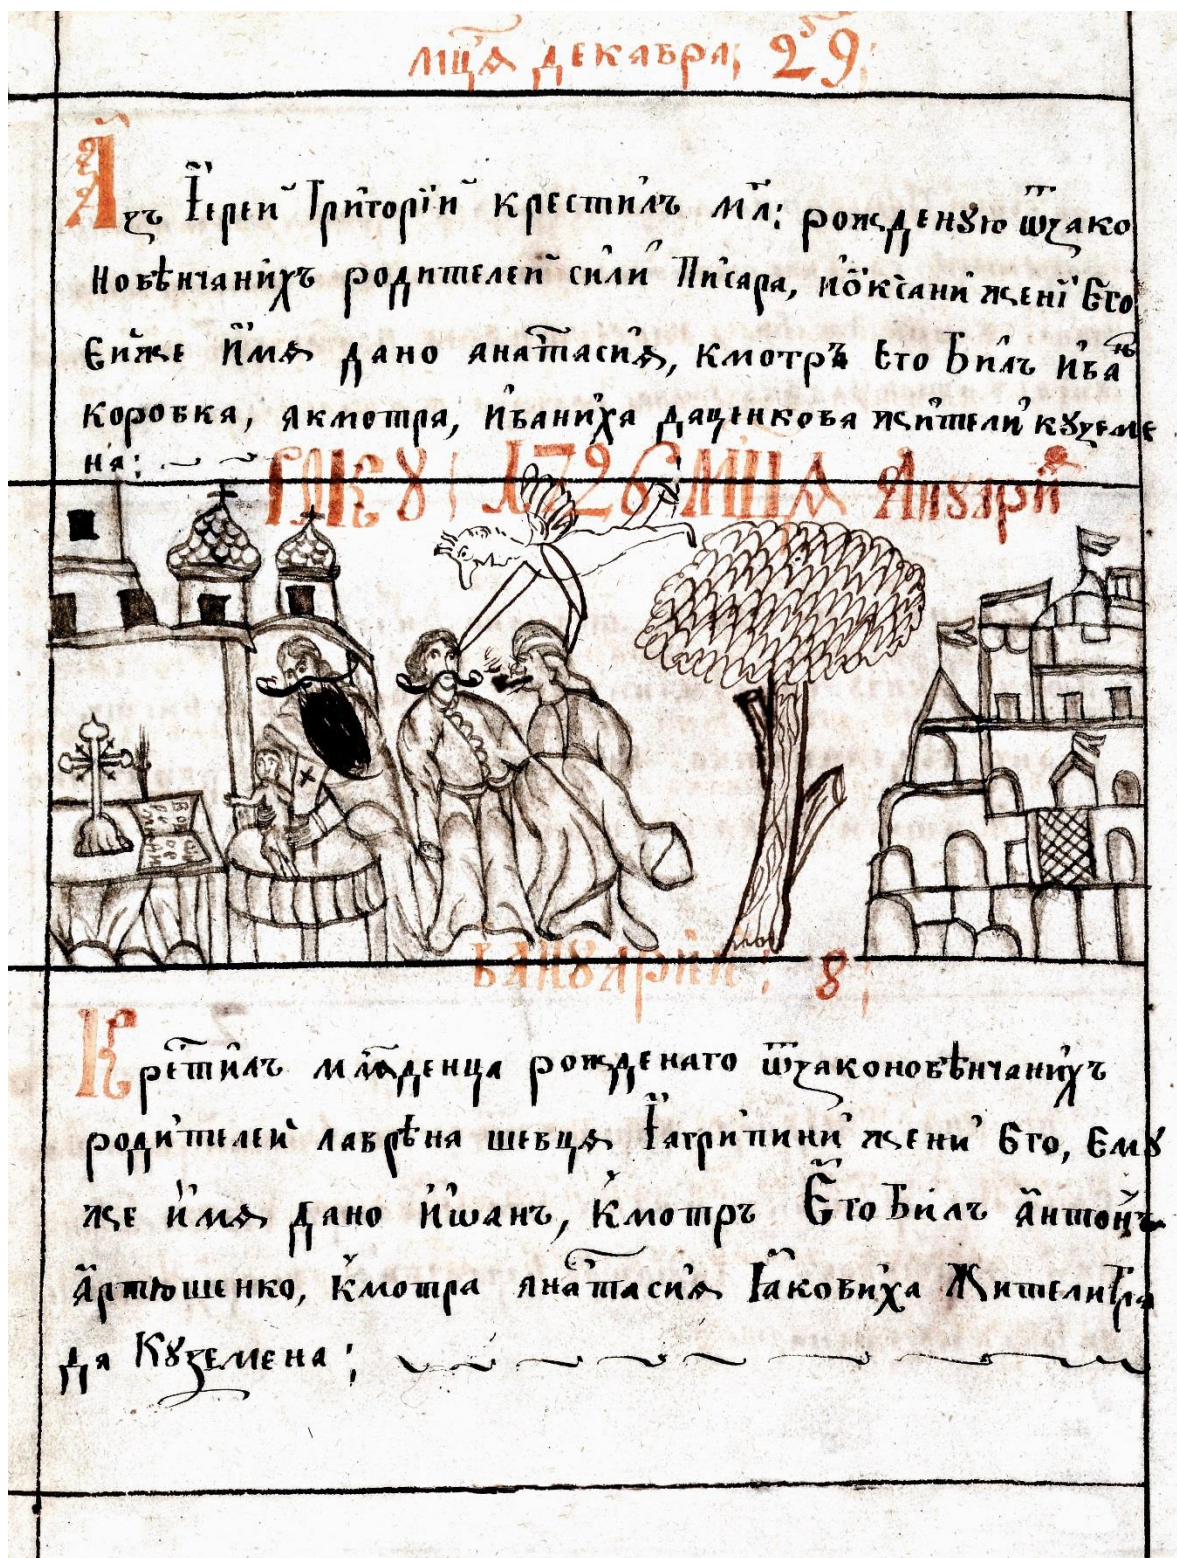 мц҃а декабра; 29;
Азъ Іерей Григорій крестилъ мл҃: рожденую ѿзако
новѣнчанихъ родителей сили Писара, иѡксани жени Его
Ейже имѧ дано анастасиѧ, кмотръ Его Билъ ива нъ
коровка, акмотра, иваниха даценкова жители куземе
на:
РОКУ 1726 МЦ҃А Януарій
Вануарій; 8;
Крестилъ младенца рожденаго ѿзаконовѣнчанихъ
родителей лаврѣна шевцѧ Іагрипини жени Его, Ему
же имѧ дано Иѡанъ, кмотръ Его Билъ антонъ
Артюшенко, кмотра анастасиѧ Іаковиха Жители Гра
да Куземена;